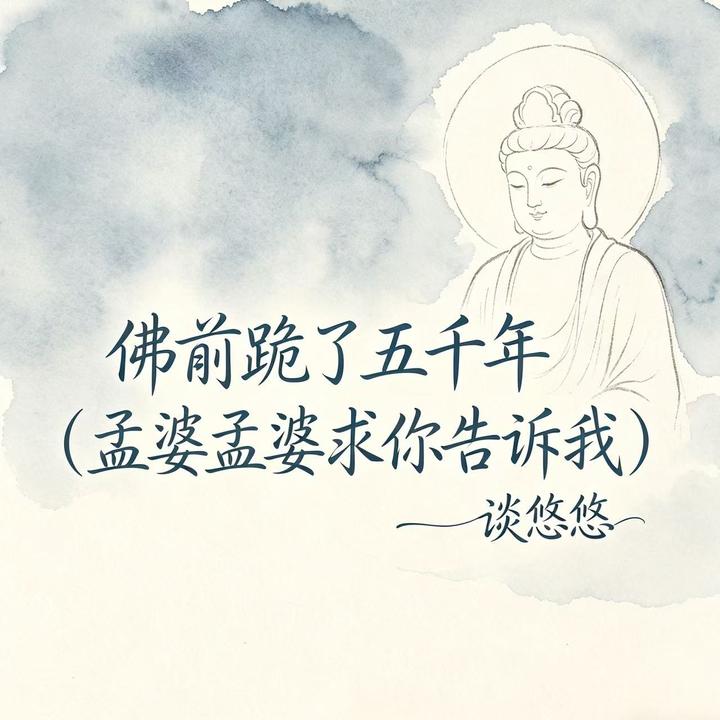 佛前跪了五千年
（孟婆孟婆求你告诉我）
——谈悠悠